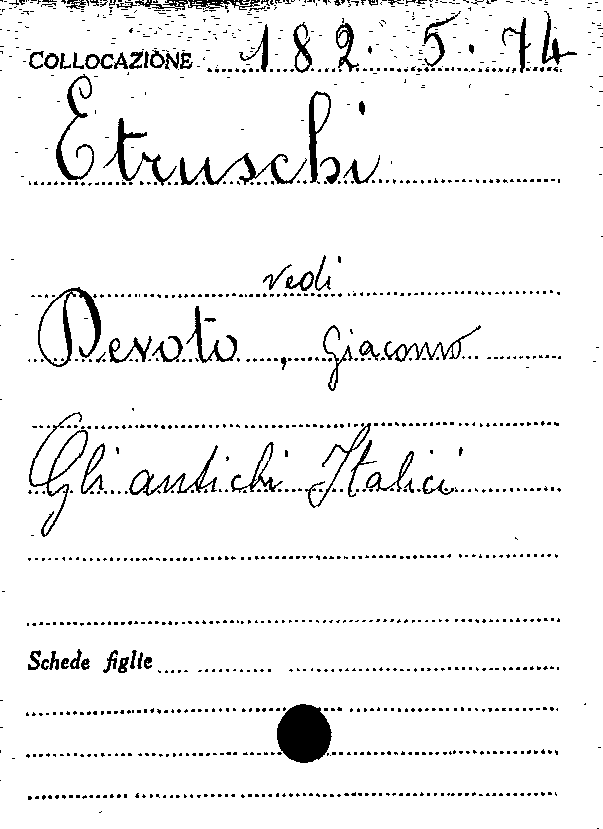 COLLOCAZIONE 182. 5. 74
Etruschi
vedi
Devoto, Giacomo
Gli antichi Italici
Schede figlie